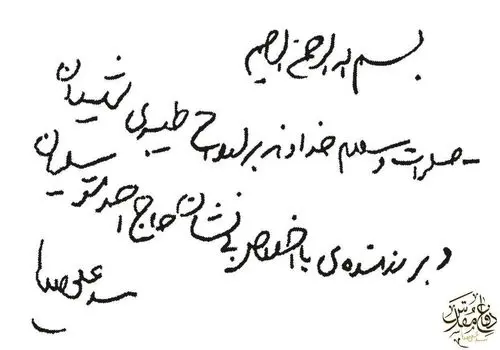 بسم الله الرحمن الرحیم
- صلوات و سلام خداوند بر ارواح طیبه‌ی شهیدان
و بر رزمنده‌ی با اخلاص بی نشان حاج احمد متوسلیان
سید علی
دفاع مقدس